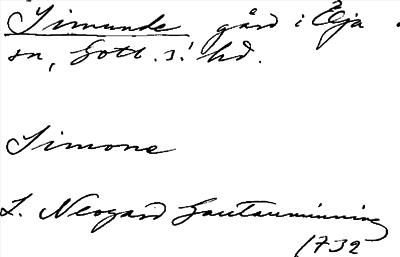 Simunde gård i Öja
sn, Gotl. s! hd.
Simone
L. Neogard Gautauminning
1732